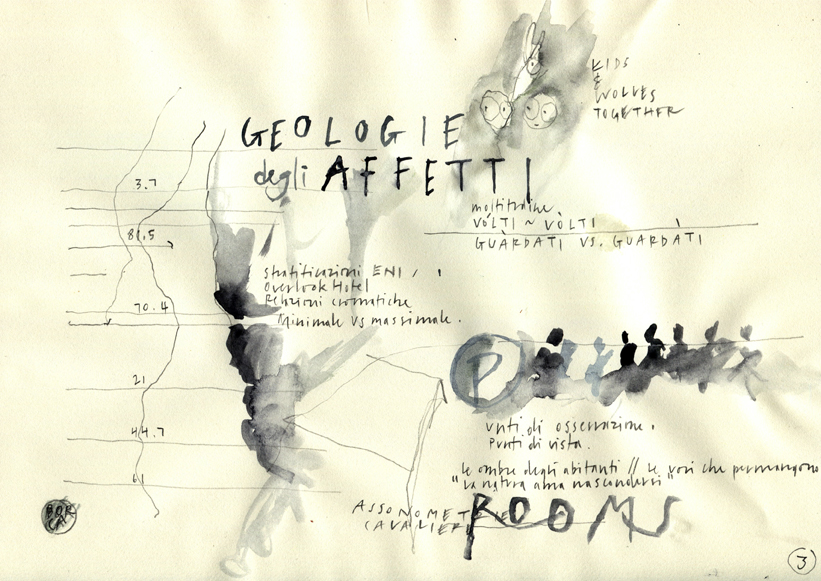 KIDS
&
WOLVES
TOGETHER
GEOLOGIE
degli AFFETTI
moltitudine
VÓLTI ~ VÒLTI
GUÀRDATI VS. GUARDÀTI
3.7
81.5
70.4
21
44.7
61
stratificazioni ENI,
Overlook Hotel
Relazioni cromatiche
Minimale vs massimale.
P
Unti di osservazione.
Punti di vista.
"le ombre degli abitanti // le voci che permangono
"La natura ama nascondersi"
ASSONOMETRIE
CAVALIERE
ROOMS
BORCA
3